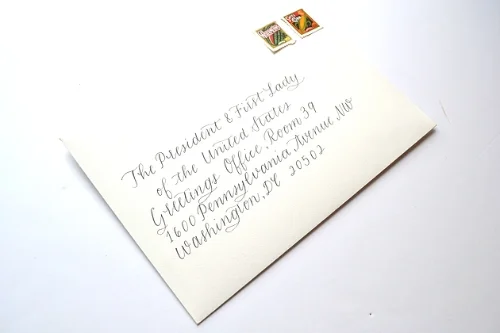 The President & First Lady
of the United States
Greetings Office, Room 39
1600 Pennsylvania Avenue, NW
Washington, DC 20502